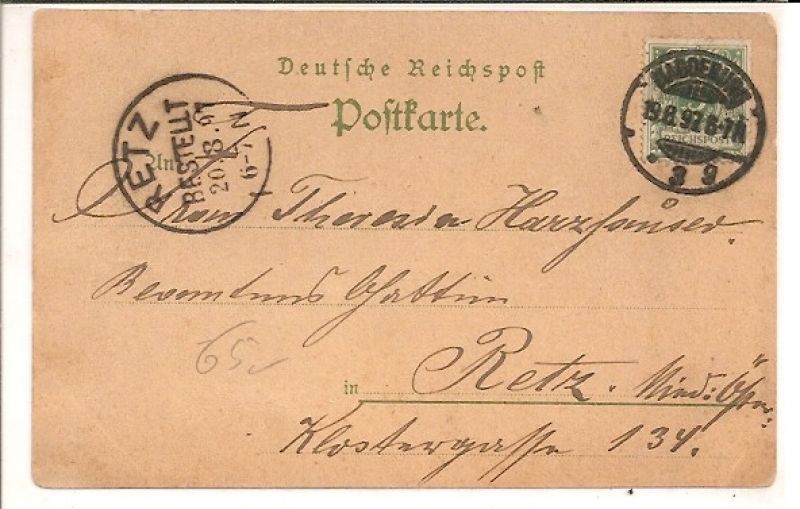 Deutsche Reichspost
Postkarte.
RETZ
BESTELLT
20/8.97
6-7 N
An
REICHSPOST
19.8.97 6-7N
Frau Theresia Harzhauser.
Beamtens Gattin
65
in Retz. Nied: Öster:
Klostergasse 134.